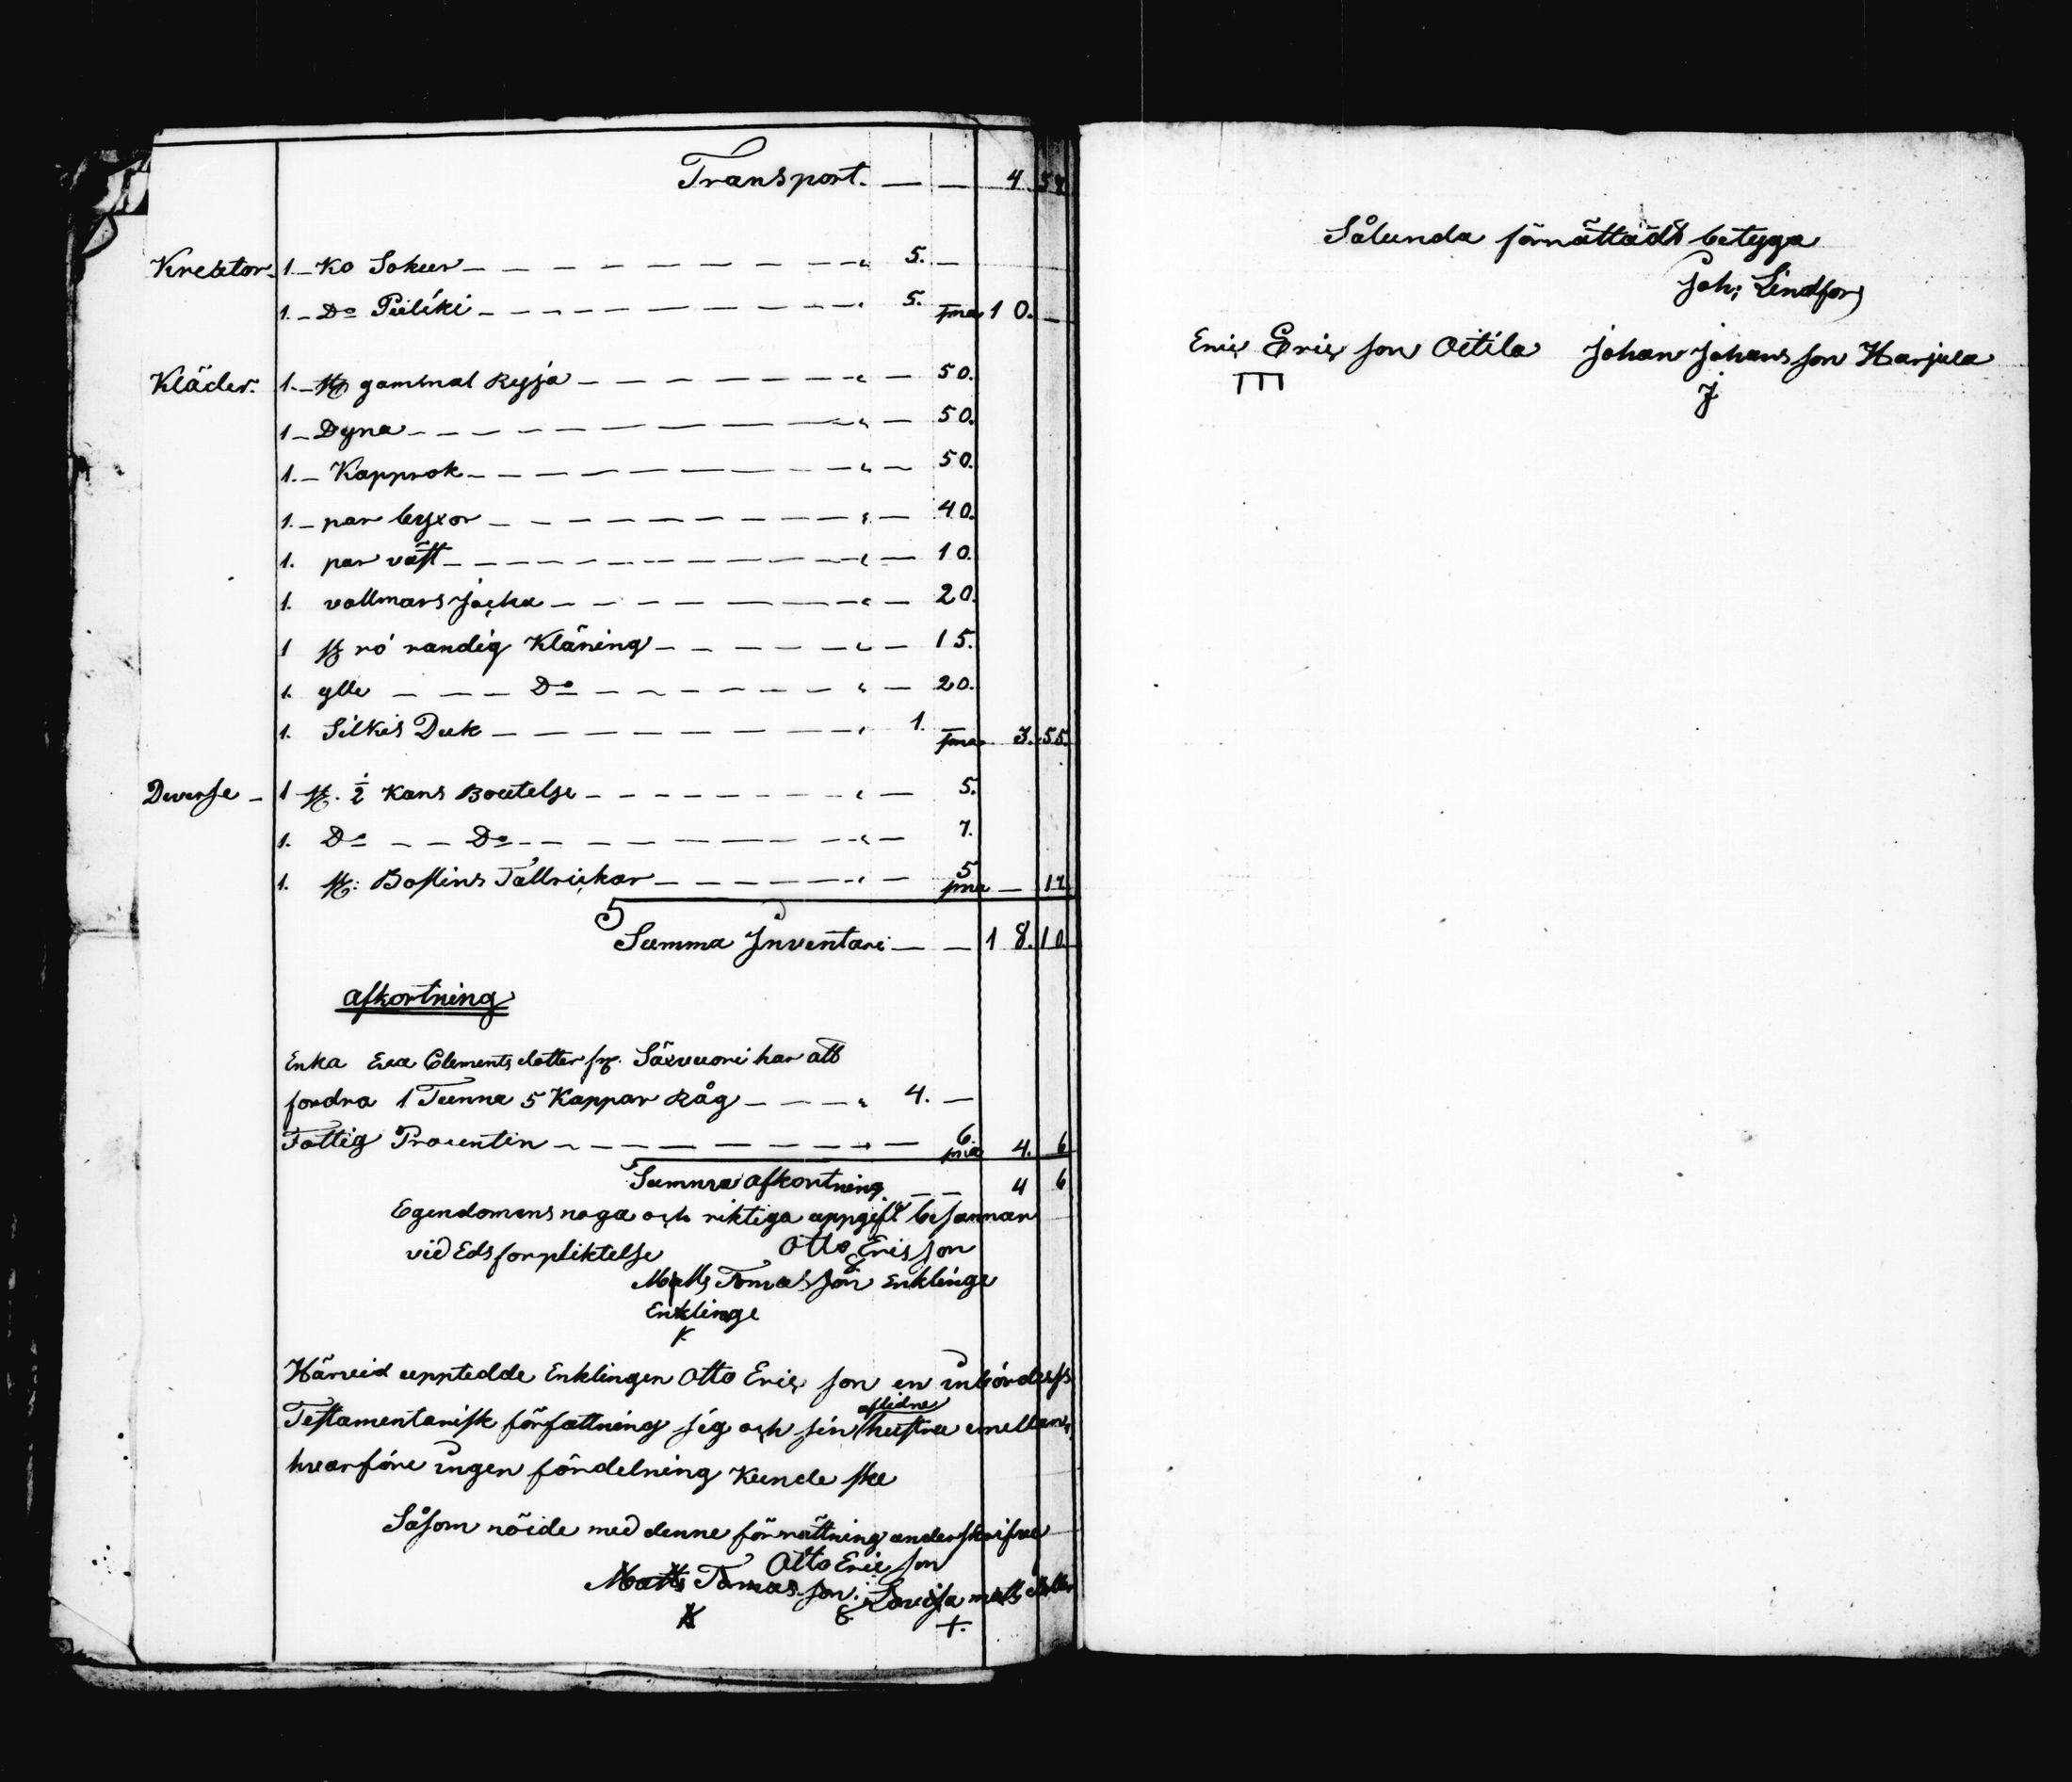 Transport. — — 4 54
Kreatur. 1. Ko Sokur — " 5. —
1. Do Piiliki — " 5. — sma 10. —
Kläder. 1. st gammal Ryja — " — 50.
1 Dyna — " — 50.
1. Kapprok — " — 50.
1. par byxor — " — 40.
1. par väst — " — 10.
1. vallmars jacka — " — 20.
1 st rö randig Kläning — " — 15.
1. ylle — Do — " — 20.
1. Silkis Duk — " 1. — sma 3. 55.
Diverse 1 st. ½ Kans Boutelje — " — 5.
1. Do — Do — " — 7.
1. st: Bostins Tallrickar — " — 5 sma — 17
Summa Inventari — — 18. 10.
afkortning
Enka Eva Clements dotter fr. Säxvuori har att
fordra 1 Tunna 5 Kappar Råg — " 4. —
Fattig Procenten — " — 6. sma 4. 6
Summa afkortning — — 4 6
Egendomens noga och riktiga uppgift besannar
vid Edsforpliktelse Otto Ericsson
Matts Tomasson Enklinge
Enklinge
Härvid upptedde Enklingen Otto Eric son en inbördess
Testamentarisk författning sig och sin aflidne hustru emellan,
hvarföre ingen fördelning Kunde ske
Såsom nöide med denne förrättning underskrifva
Otto Eric son
Matts Tomas son. Lovisa matts dotter
+.
Sålunda förrättadt betyga
Joh; Lindfors
Eric Eric son Oitila Johan Johans son Harjula
III J